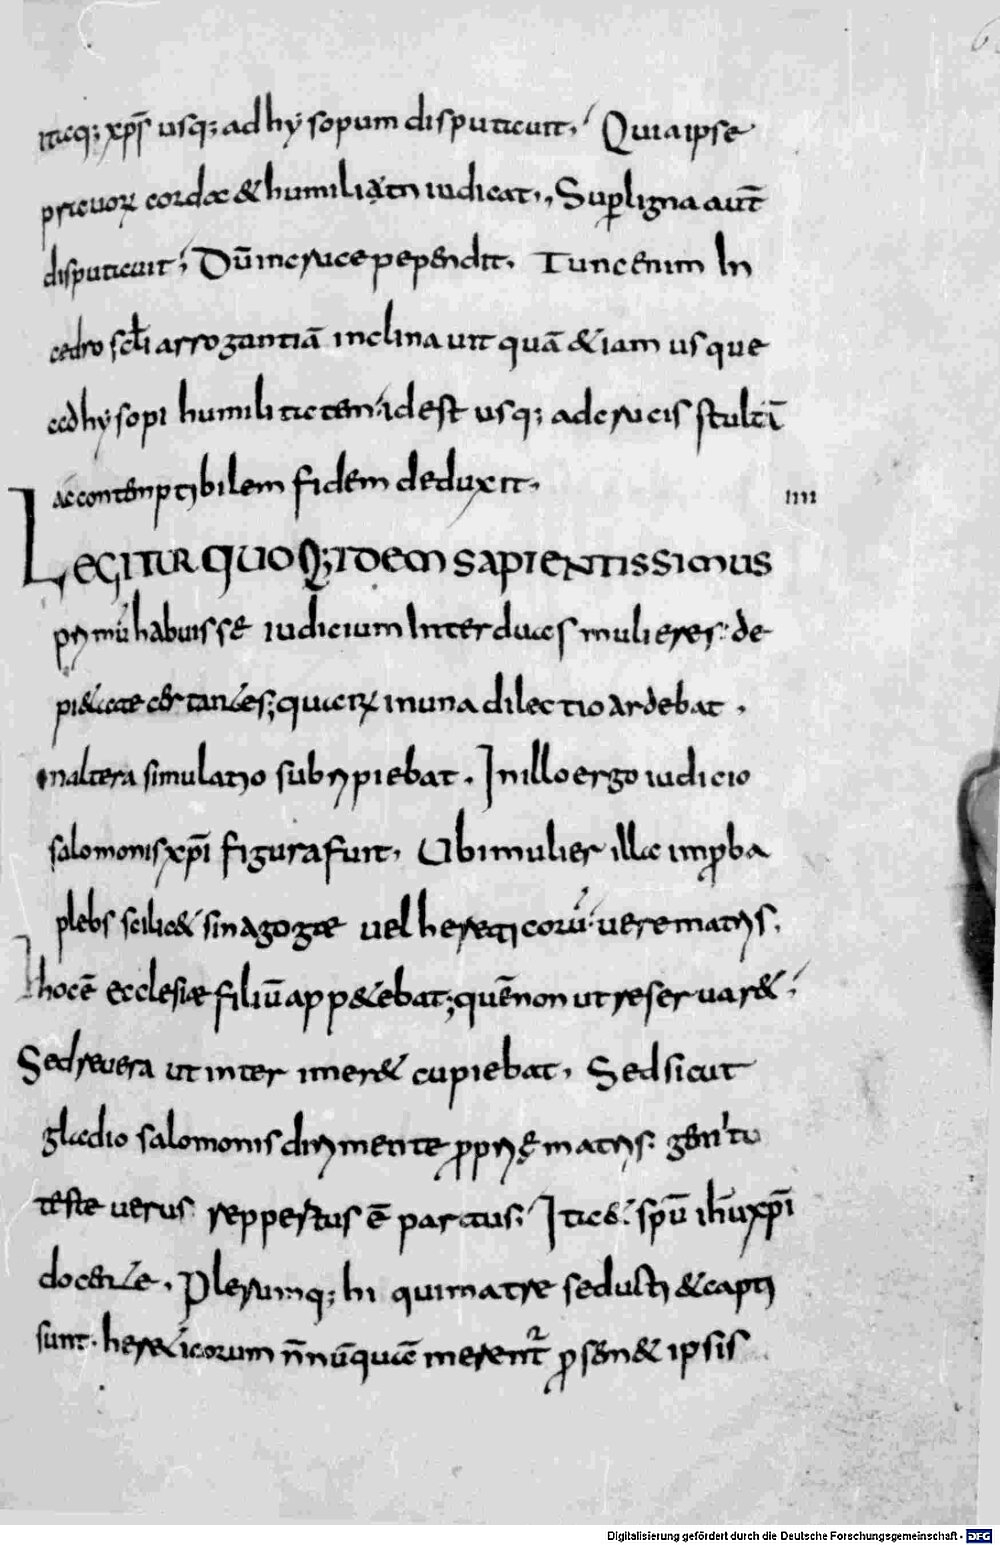 itaq; xp̄s usq; ad hysopum disputauit. Quia ipse
prauorꝝ corda & humilia & iudicat. Super ligna aut̄
disputauit; Dū in cruce pependit. Tunc enim In
cedro sc̄li arrogantiā inclinauit quā & iam usque
ad hysopi humilitatem. id est usq; ad crucis stultā
ac contemptibilem fidem deduxit.
IIII
LEGITUR QUOQ; IDEM SAPIENTISSIMUS
primū habuisse iudicium Inter duas mulieres. de
pi&ate certantes; quarꝝ in una dilectio ardebat,
In altera simulatio subripiebat. In illo ergo iudicio
salomonis xp̄i figura fuit. Ubi mulier illa improba
plebs scilic& sinagogæ uel hereticorū. uere matris.
hoc ē ecclesiæ filiū app&ebat; quē non ut reseruar&;
Sed reuera ut interimer& cupiebat. Sed sicut
gladio salomonis dirimente propriæ matris. genitu
teste uerus reppertus ē partus; Ita & sp̄u ih̄u xp̄i
docente. Plerumq; hi qui matre seducti & capti
sunt. hereticorum n̄nūquā merent᷑ pro sen& ipsis
Digitalisierung gefördert durch die Deutsche Forschungsgemeinschaft - DFG